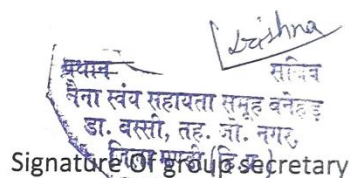 Krishna
प्रधान सचिव
नैना स्वंय सहायता समूह वनेहड़
डा. वस्सी, तह. जो. नगर
जिला मण्डी (हि.प्र.)
Signature Of group secretary